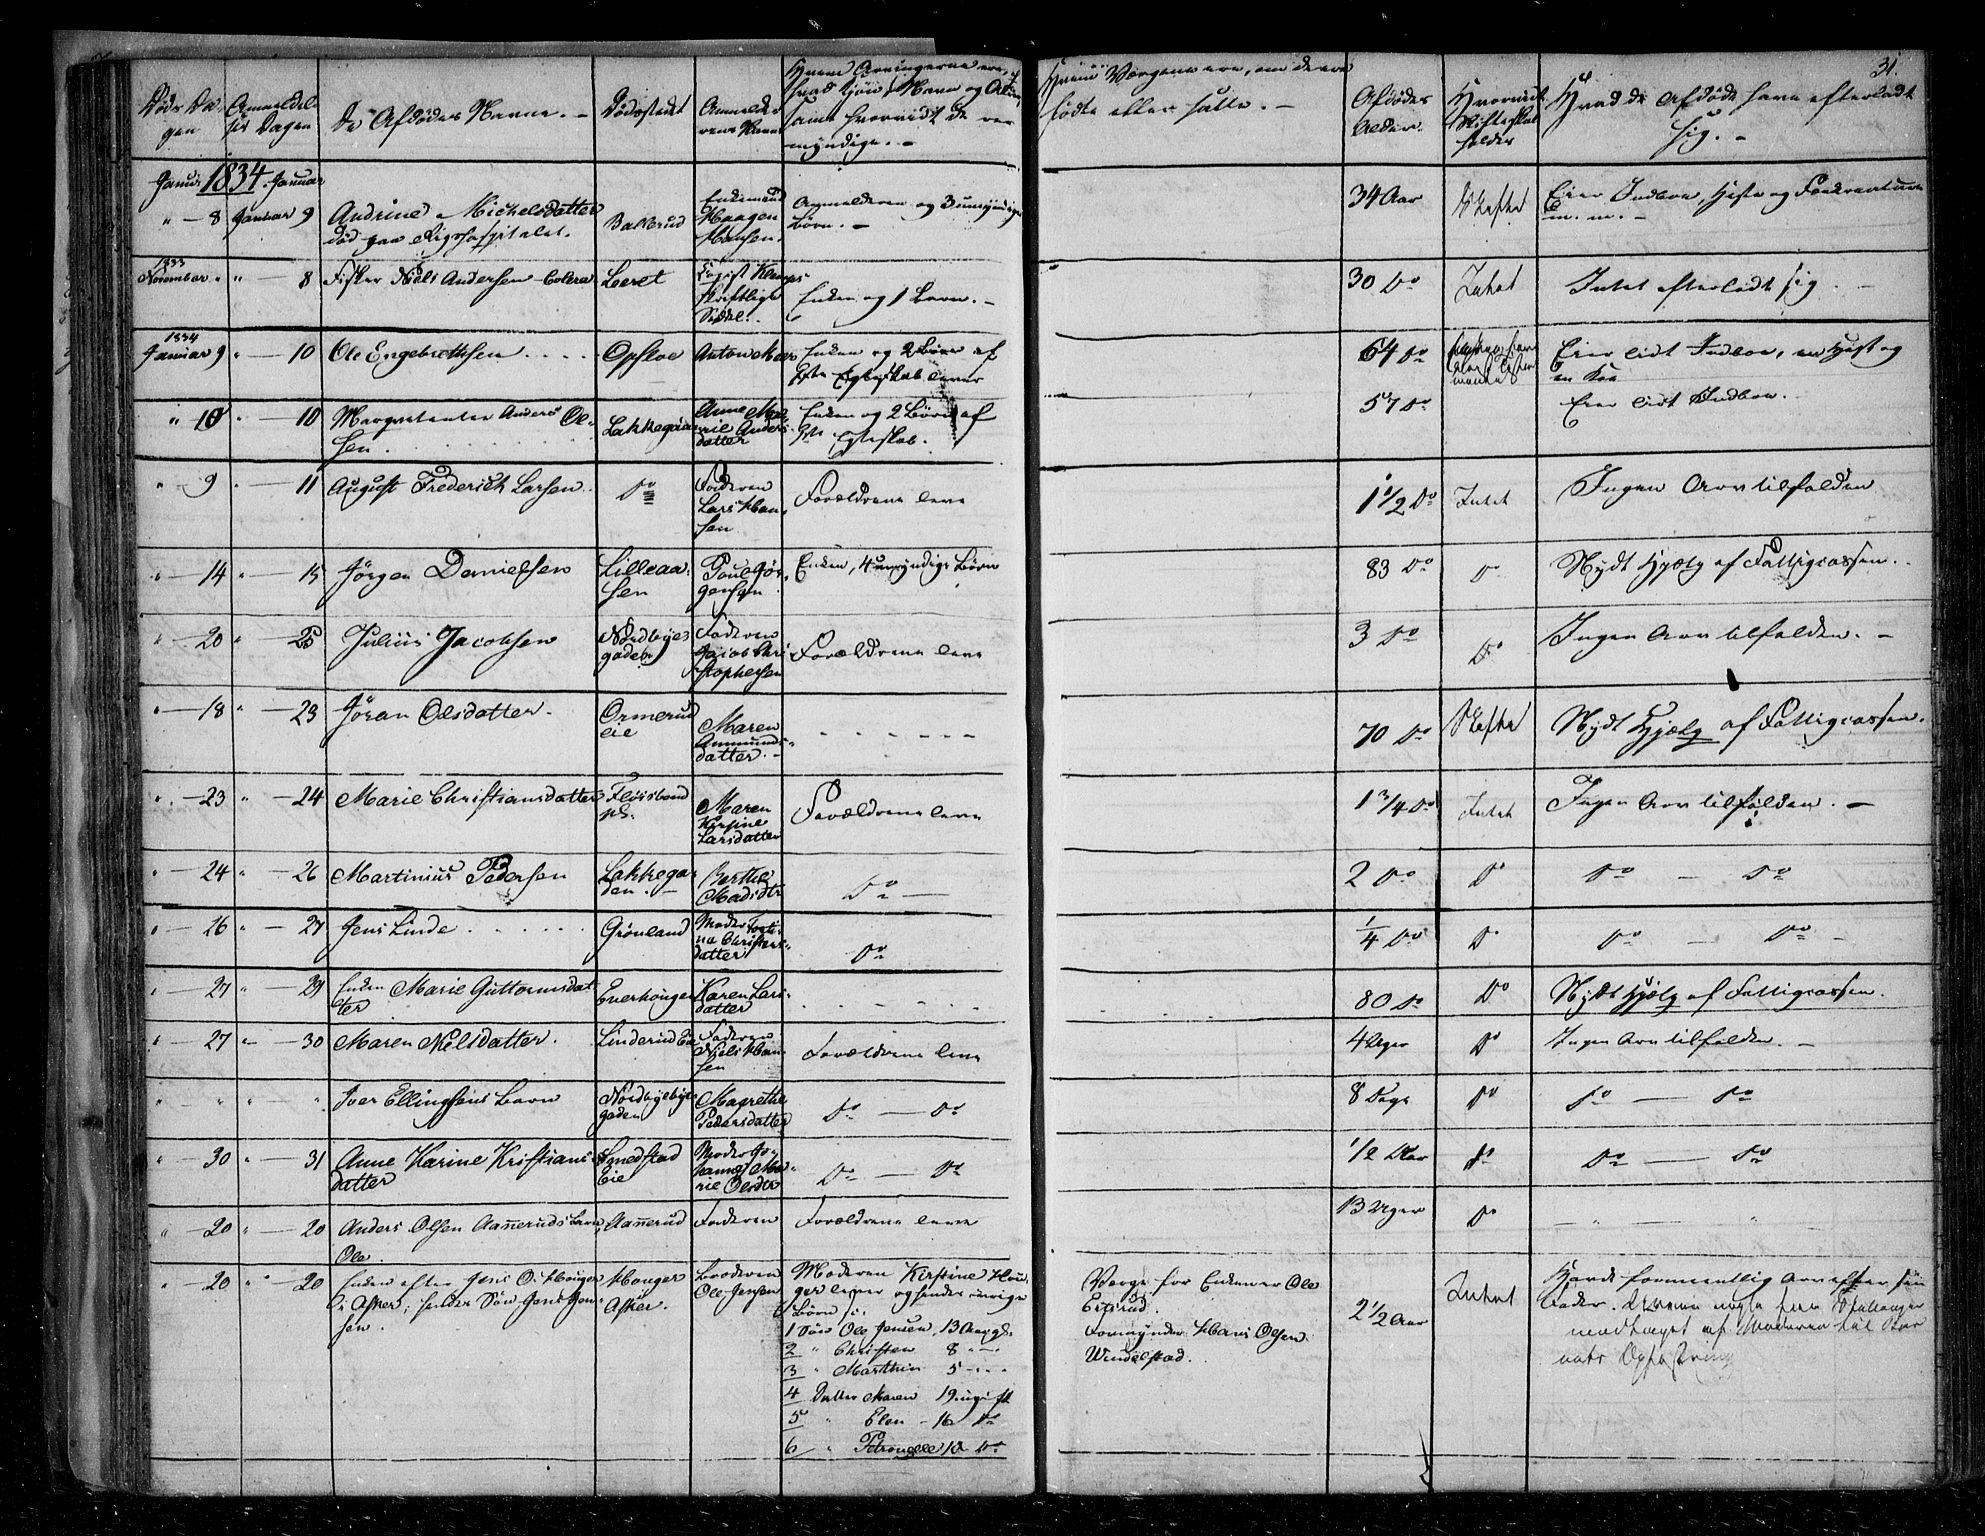 31.
Döds Da-
gen
Anmeldel-
ses Dagen
De Afdødes Navne. –
Dødsstedet
Anmelde-
rens Navn
Hvem Arvingerne ere,
hvad Kjøn, Navn og Alder,
samt hvorvidt de ere
myndige. –
Hvem Værgerne ere, om de ere
fødte eller satte. –
Afdødes
Alder.
Hvorvidt
Skifte
holdes
Hvad de Afdøde have efterladt
sig. –
1834
Januar Januar
" – 8 Januar 9 Andrine Michelsdatter
død paa Rigshospitalet.
Bakkerud
Enkemand
Haagen
Hansen.
Anmelderen og 3 umyndige
Børn. –
34 Aar
Skifte
Eier Indboe, Heste og Kreaturer
m. m. –
1833
November " " – 8 Fisker Niels Andersen Colera
Leret
Skriftlige
Seddel.
Enken og 1 Barn. –
30 Do
Intet
Intet efterladt sig. –
1834
Januar 9 " – 10 Ole Engebrethsen . . . .
Opsloe
Enken og 2 Børn af
Ægteskab lever
64 Do
Eier lidt Indboe, en Hest og
en Koe
" 10 " 10 Marqvetenter Anders Ol-
sen.
Lakkegaden
Anne Ma-
rie Anders-
datter
Enken og 2 Børn af
Egteskab.
57 Do
Eier lidt Indboe.
" – 9 " – 11 August Frederich Larsen.
Do
Faderen
Lars Han-
sen
Forældrene leve
1 1/2 Do
Intet
Ingen Arv tilfalden
" – 14 " – 15 Jörgen Danielsen
Lilleaa-
sen
Poul Jör-
gensen
Enken, 4 umyndige Börn
83 Do
Do
Nydt Hjælp af Fattigcassen.
" – 20 " – 25 Julius Jacobsen
Nordbye
gaden
Faderen
Jacob Chri-
stophersen
Forældrene leve
3 Do
Do
Ingen Arv tilfalden. –
" – 18 " – 23 Jöran Olsdatter.
Ormerud
eie
Maren
Ammunds-
datter. –
70 Do
Skifte
Nydt Hjælp af Fattigcassen.
" – 23 " – 24 Marie Christiansdatter
Fløisbond
pl.
Maren
Kirstine
Larsdatter
Forældrene leve
1 3/4 Do
Intet
Ingen Arv tilfalden. –
" – 24 " – 26 Martinius Pedersen
Lakkega-
den. –
Berthe
Madsdtr
Do –
2 Do
Do
Do – Do
" – 26 " – 27 Jens Linde . . . . .
Grönland
Moder
na Christens-
datter
Do
1/4 Do
Do
Do – Do –
" – 27 " – 29 Enken Marie Guttormsdat-
ter
Everhougen
Karen Lars-
datter
80 Do
Do
Nydt Hjælp af Fattigcassen.
" – 27 " – 30 Maren Nilsdatter.
Linderud Eie
Faderen
Niels Han-
sen
Forældrene leve
4 Uger
Do
Ingen Arv tilfalden. –
" " " " Iver Ellingsens Barn
Nordbye
gaden
Magrethe
Pedersdatter
Do – Do
8 Dage
Do
Do – Do
" – 30 " – 31 Anne Karine Kristians-
datter
Smedstad
Eie
Moder Jo-
hanne Ma-
rie Olsdtr
Do – Do
1/2 Aar
Do
Do – Do
" – 20 " – 20 Anders Olsen Aameruds Barn,
Ole.
Aamerud
Faderen
Forældrene leve
13 Uger
Do
" – 20 " " 20 Enken efter Jens O. Houger
i Asker; hendes Sön Jens Jen-
sen.
Houger
Asker.
Broderen
Ole Jensen
Moderen Kirstine Hou-
ger lever og hendes övrige
Børn:
1 Sön Ole Jensen, 13 Aar gl.
2 " Christen 8 " – "
3 " Marthin 5 – " "
4 Datter Maren 19 ugift
5 " Elen – 16 Do
6 " Petronelle 12 Do
Værge for Enken er Ole
Eidsrud.
Formynder Hans Olsen
Windelstad.
2 1/2 Aar
Intet
Havde formentlig Arv efter sin
Fader.
modtaget af Moderen til Bar
nets Opfostring